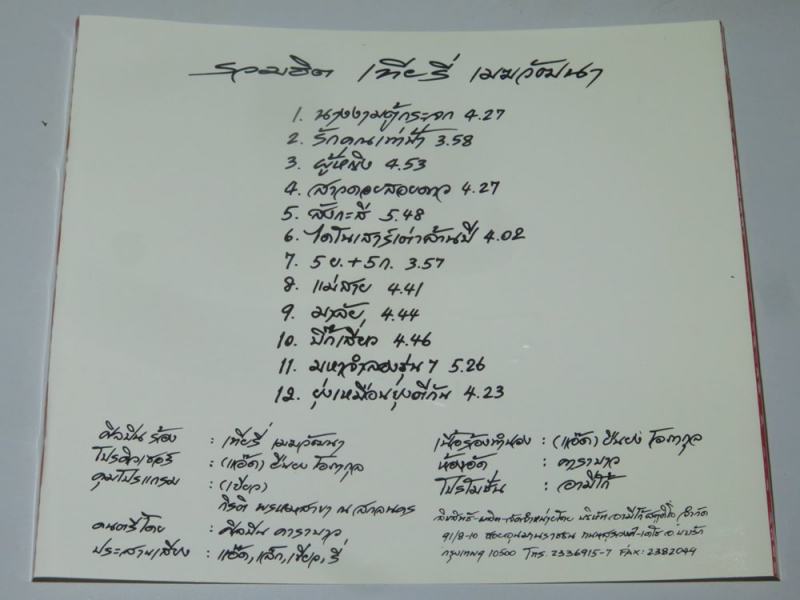 รวมฮิต เทียรี่ เมฆวัฒนา
1. นางงามตู้กระจก 4.27
2. รักคุณเท่าฟ้า 3.58
3. ผู้หญิง 4.53
4. สาวดอยสอยดาว 4.27
5. สังกะสี 5.48
6. ไดโนเสาร์เต่าล้านปี 4.02
7. 5 ย. + 5 ก. 3.57
8. แม่สาย 4.41
9. มาลัย 4.44
10. บิ๊กเสี่ยว 4.46
11. มหาจำลองรุ่น 7 5.26
12. ยุ่งเหมือนยุงตีกัน 4.23
ศิลปินร้อง : เทียรี่ เมฆวัฒนา
โปรดิวเซอร์ : (แอ๊ด) ยืนยง โอภากุล
คุมโปรแกรม : (เขียว)
กีรติ พรหมสาขา ณ สกลนคร
ดนตรีโดย : ศิลปิน คาราบาว
ประสานเสียง : แอ๊ด, เล็ก, เขียว, รี่
เนื้อร้องทำนอง : (แอ๊ด) ยืนยง โอภากุล
ห้องอัด : คาราบาว
โปรโมชั่น : อามีโก้
ลิขสิทธิ์-ผลิต-จัดจำหน่ายโดย บริษัท อามีโก้ สตูดิโอ จำกัด
91/8-10 ซอยอนุมานราชธน ถนนสุรวงศ์-เดโช อ.บางรัก
กรุงเทพฯ 10500 โทร. 2336915-7 FAX: 2382044